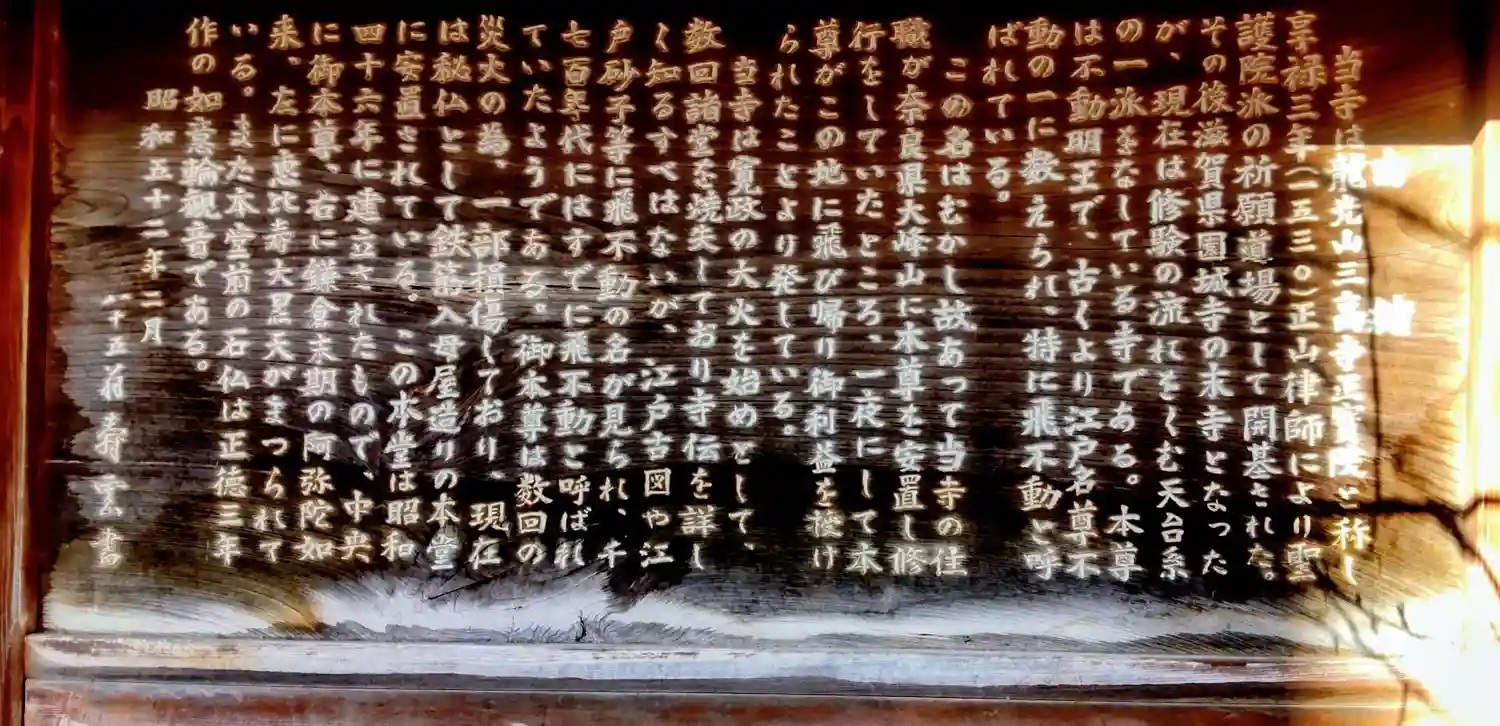 由緒
当寺は龍光山三高寺正寳院と称し
享禄三年(一五三〇)正山律師により聖
護院派の祈願道場として開基された。
その後滋賀県園城寺の末寺となった
が、現在は修験の流れをくむ天台系
の一派をなしている寺である。本尊
は不動明王で、古くより江戸名尊不
動の一に数えられ、特に飛不動と呼
ばれている。
この名はむかし故あって当寺の住
職が奈良県大峰山に本尊を安置し修
行をしていたところ、一夜にして本
尊がこの地に飛び帰り御利益を授け
られたことより発している。
当寺は寛政の大火を始めとして、
数回諸堂を焼失しており寺伝を詳し
く知るすべはないが、江戸古図や江
戸砂子等に飛不動の名が見られ、千
七百年代にはすでに飛不動と呼ばれ
ていたようである。御本尊は数回の
災火の為、一部損傷しており、現在
は秘仏として鉄筋入母屋造りの本堂
に安置されている。この本堂は昭和
四十六年に建立されたもので、中央
に御本尊、右に鎌倉末期の阿弥陀如
来、左に恵比寿大黒天がまつられて
いる。また本堂前の石仏は正徳三年
作の如意輪観音である。
昭和五十二年二月
八十五翁寿雲書